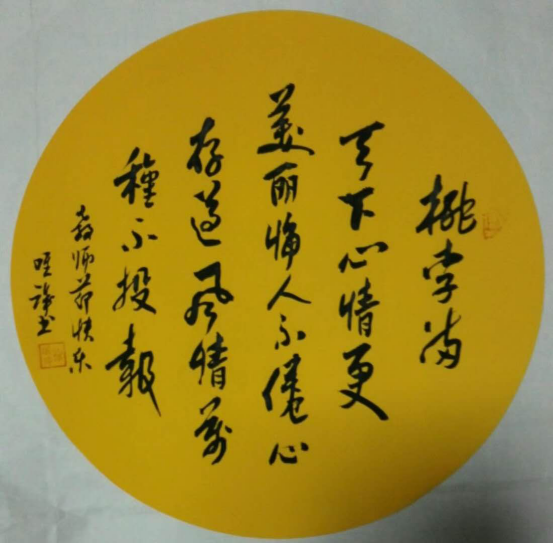 桃李满
天下心情更
美丽悔人不倦心
存道风情万
种不投报
教师节快乐